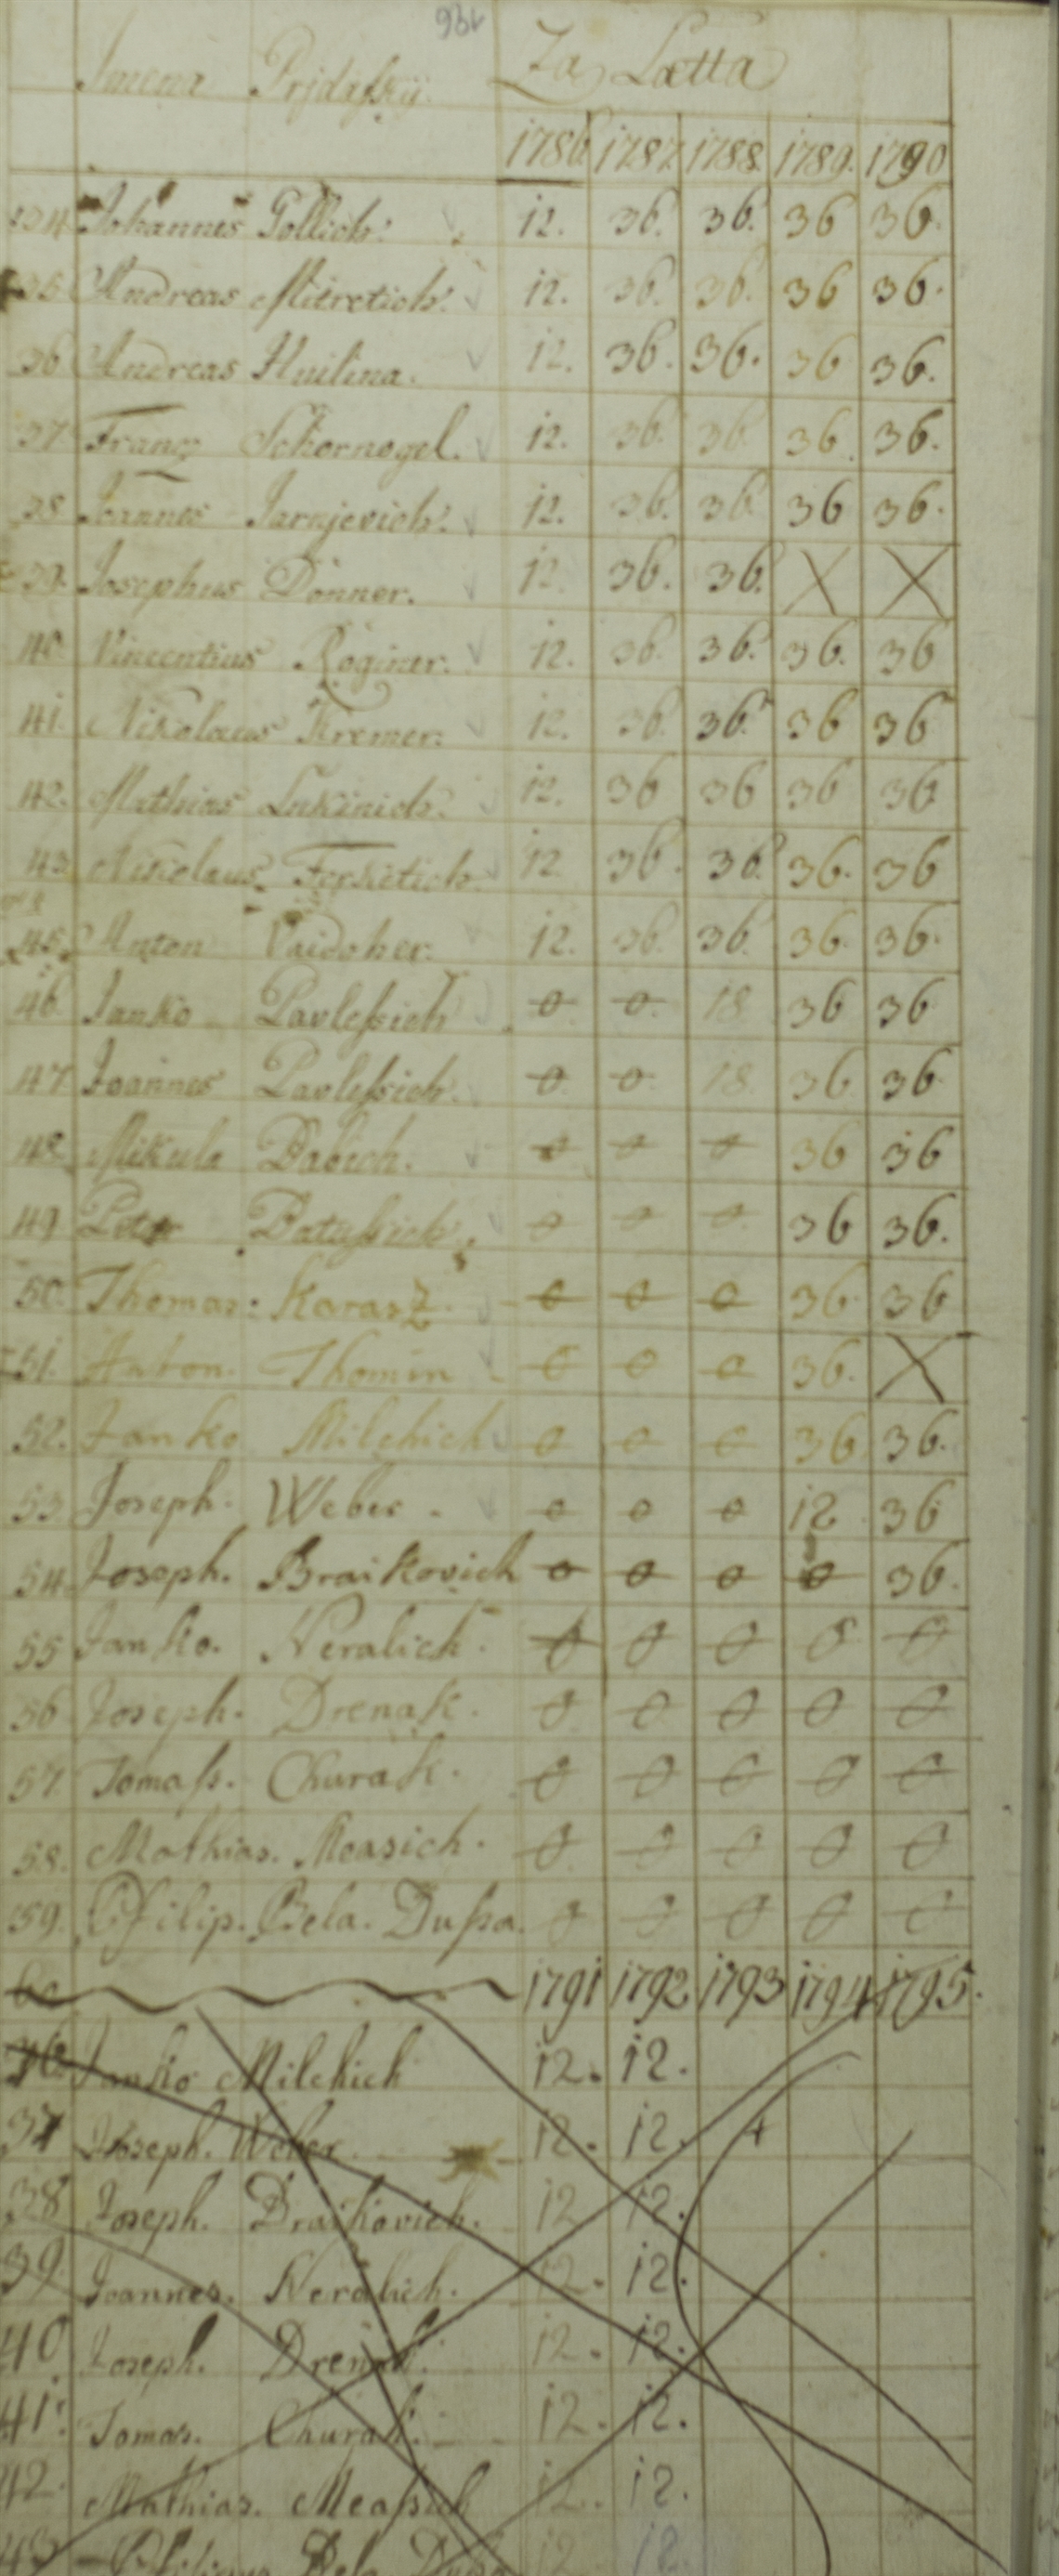 931
Imena Pridaſsky Za Lætta
1786 1787 1788 1789. 1790
34 Johannes Gollich. 12. 36. 36. 36 36.
35 Andreas Mitretich. 12. 36. 36. 36 36.
36 Andreas Huilina. 12. 36. 36. 36 36.
37 Franz Schornogel. 12. 36. 36 36. 36.
38 Joannes Jarnjevich. 12. 36. 36 36 36.
39. Josephus Donner. 12. 36. 36. X X
40. Vincentius Roginer. 12. 36. 36. 36. 36
41. Nikolaus Kremer. 12. 36. 36. 36 36
42. Mathias Lukinich. 12. 36 36 36 36
43 Nikolaus Ferketich 12 36. 36. 36. 36
45. Anton Vaidoher. 12. 36. 36. 36. 36.
46 Janko Pavleſsich 0 0. 18 36 36
47 Joannes Pavleſsich. 0 0 18. 36 36
48. Mikula Babich. 0 0 0 36 36
49 Peter Batuſsich 0 0 0 36 36.
50. Thomas: Karasz 0 0 0 36. 36
51. Anton. Thomin 0 0 0 36. X
52. Janko Milchich 0 0 0 36 36.
53 Joseph. Weber. 0 0 0 12 36
54. Joseph. Braikovich 0 0 0 0 36.
55 Janko. Neralich. 0 0 0 0 0
56 Joseph. Drenak. 0 0 0 0 0
57. Tomaſs. Churak. 0 0 0 0 0
58. Mathias. Measich. 0 0 0 0 0
59. Filip. Bela. Duſsa. 0 0 0 0 0
60 1791 1792 1793 1794 1795.
36 Janko Milchich 12. 12.
37 Joseph. Weber. 12. 12. +
38 Joseph. Braikovich. 12 12.
39. Joannes. Neralich. 12. 12.
40. Joseph. Drenak. 12. 12.
41. Tomas. Churak. 12. 12.
42. Mathias. Meaſsich 12. 12.
43 Bela 12. 12.